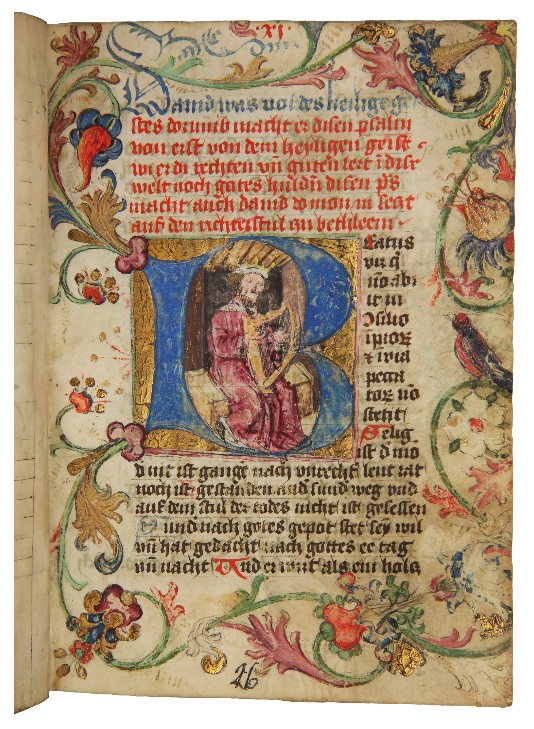 ·XI·
David was vol des heilige ge
stes dorumb macht er disen psalm
von erst von dem heyligen geist
wi er di rechten vn̄ guten lert ī dise
welt noch gotes huldn̄ disen ps̄
macht auch david do mon in sect
auf den richterstul zu bethleem
B
eatus
vir q̄
nō abi
it in
9silio
īpior̄
⁊ in via
pecca
tor̄ nō
stetit
Selig
ist d̄ mo
d nit ist gange nach unrecht̄ leut rat
noch ist gestanden auf sund weg und
auf dem stul des todes nicht ist gesessen
Sund nach gotes gepot stet sey wil
vn̄ hat gedacht nach gottes ee tag
vn̄ nacht Und er wirt als ein holz
26